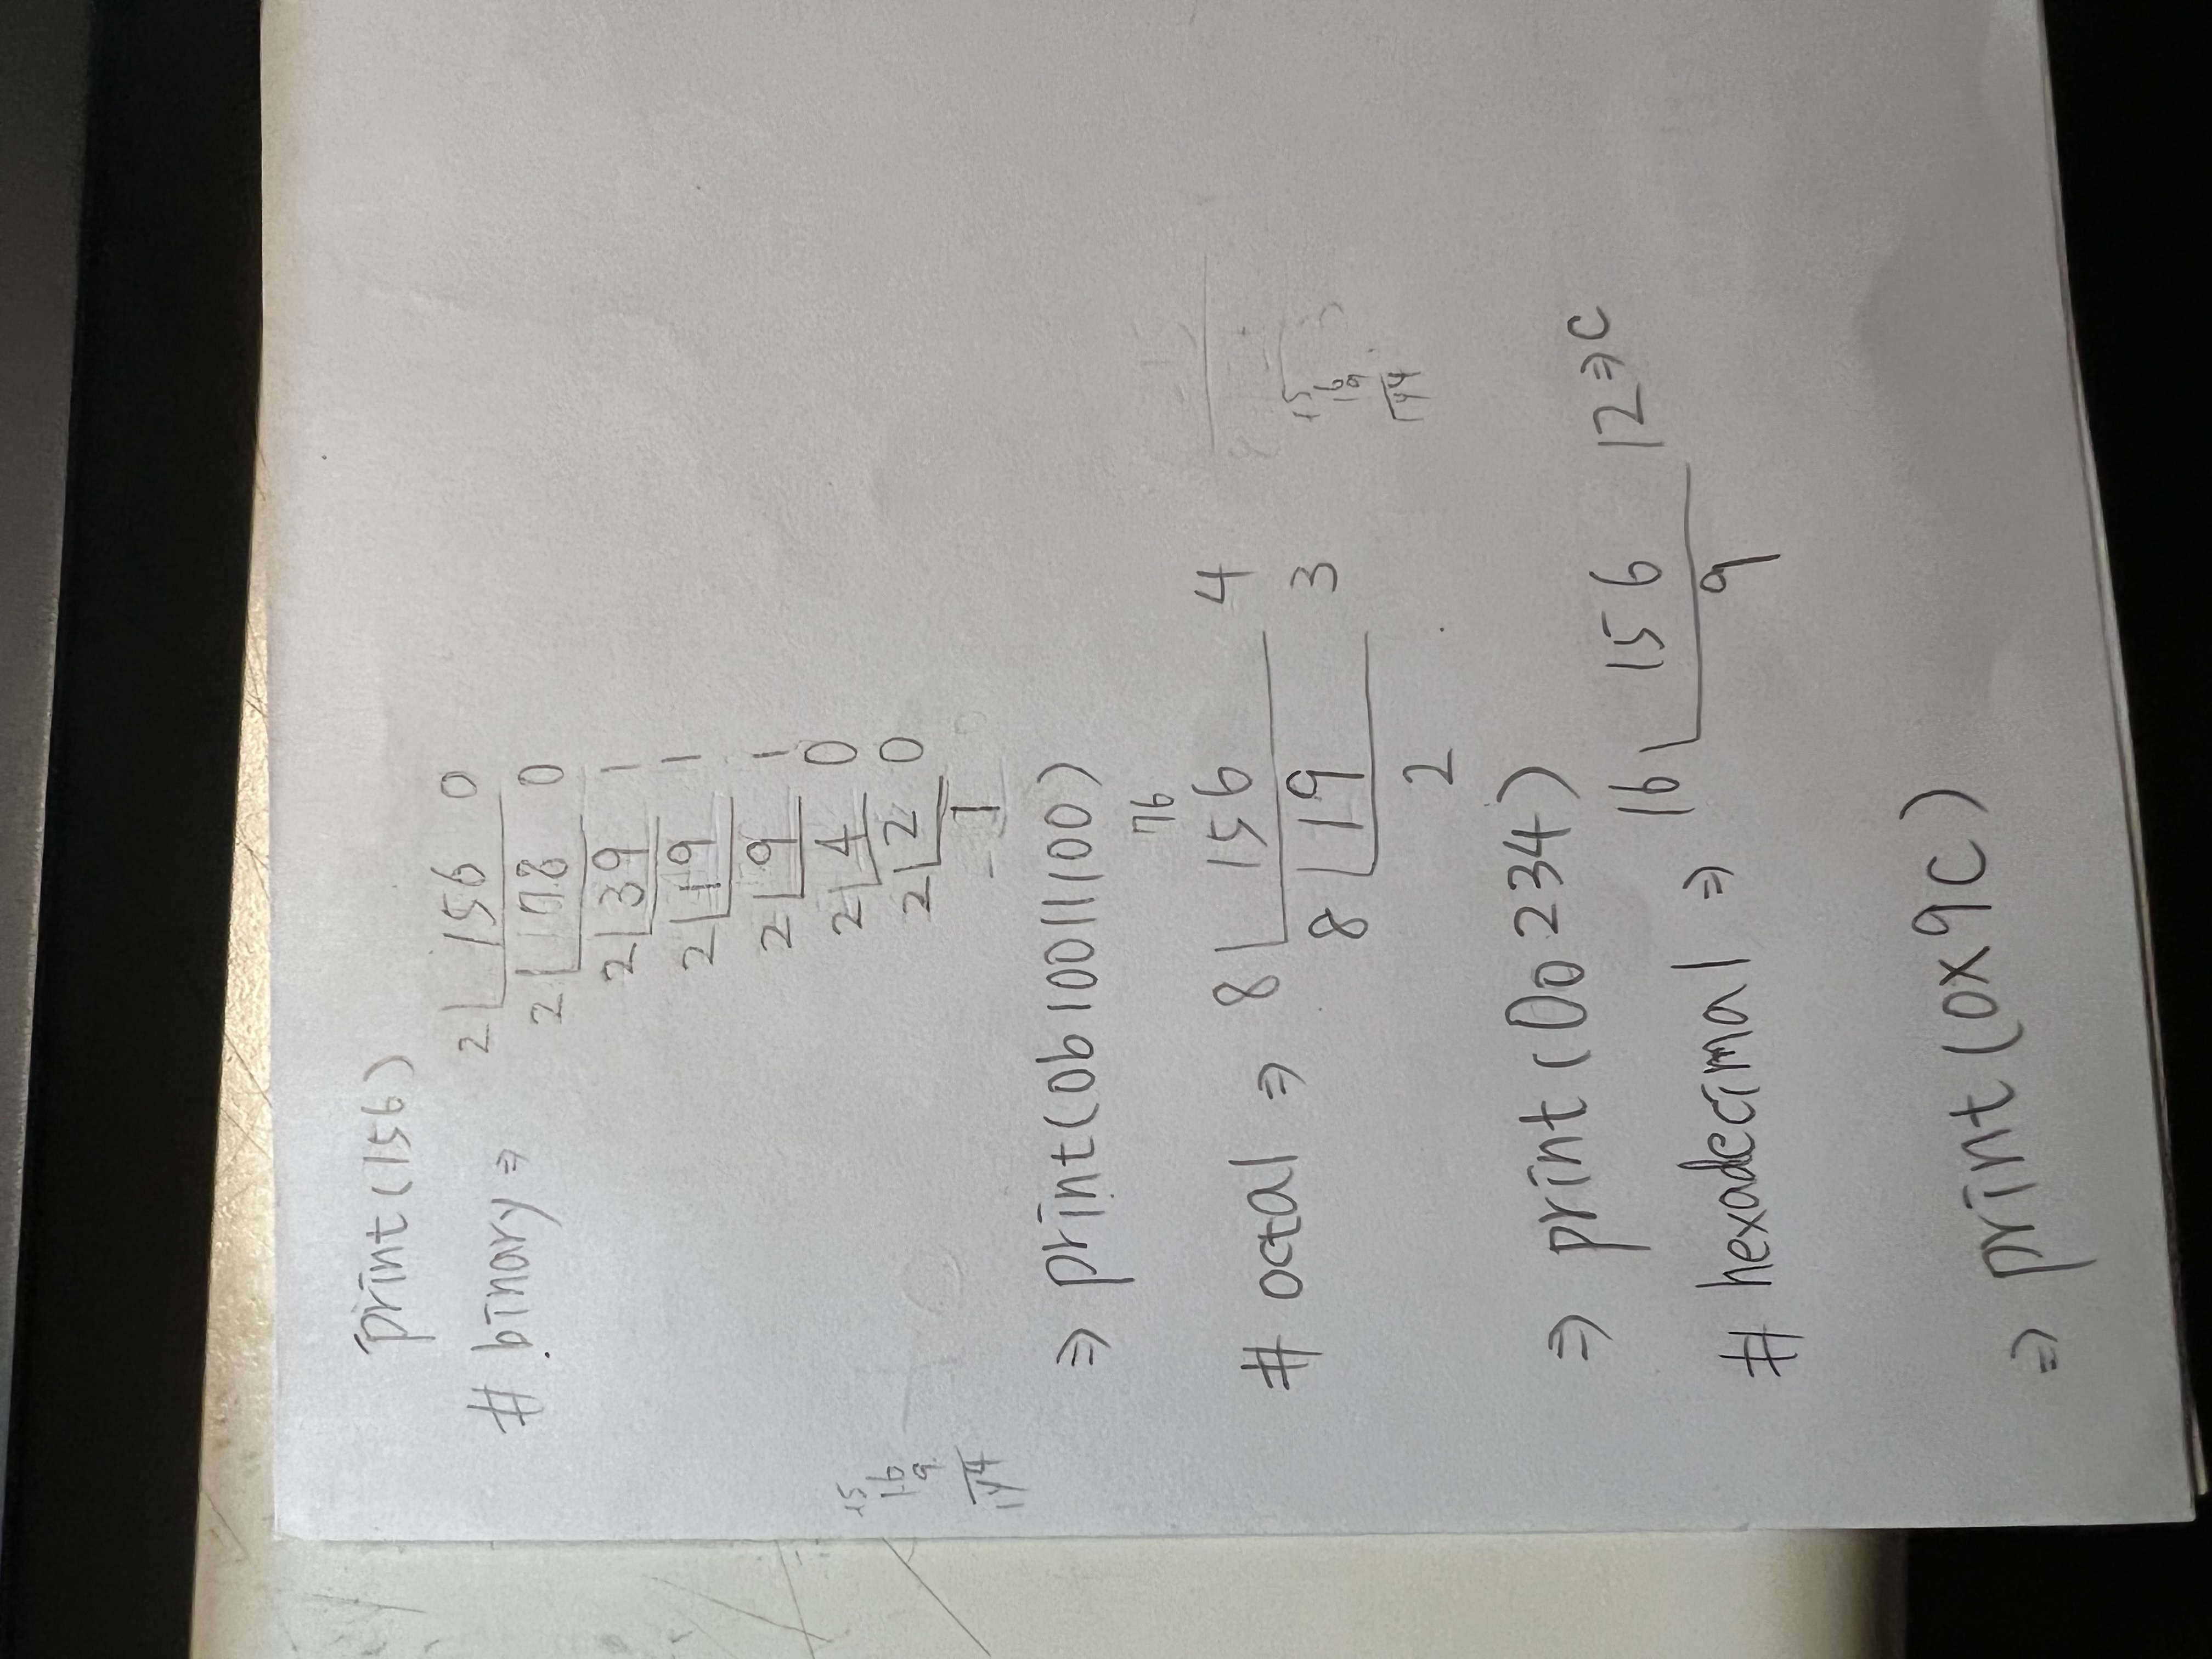 print(156)
# binary ⇒ 2 156 0
2 78 0
2 39 1
2 19 1
2 9 1
2 4 0
2 2 0
- 1
15
16
9
144
⇒ print(0b10011100)
76
# octal ⇒ 8 156 4
8 19 3
2
15
16
9
144
⇒ print(0o234)
# hexadecimal ⇒ 16 156 12⇒C
9
⇒ print(0x9C)